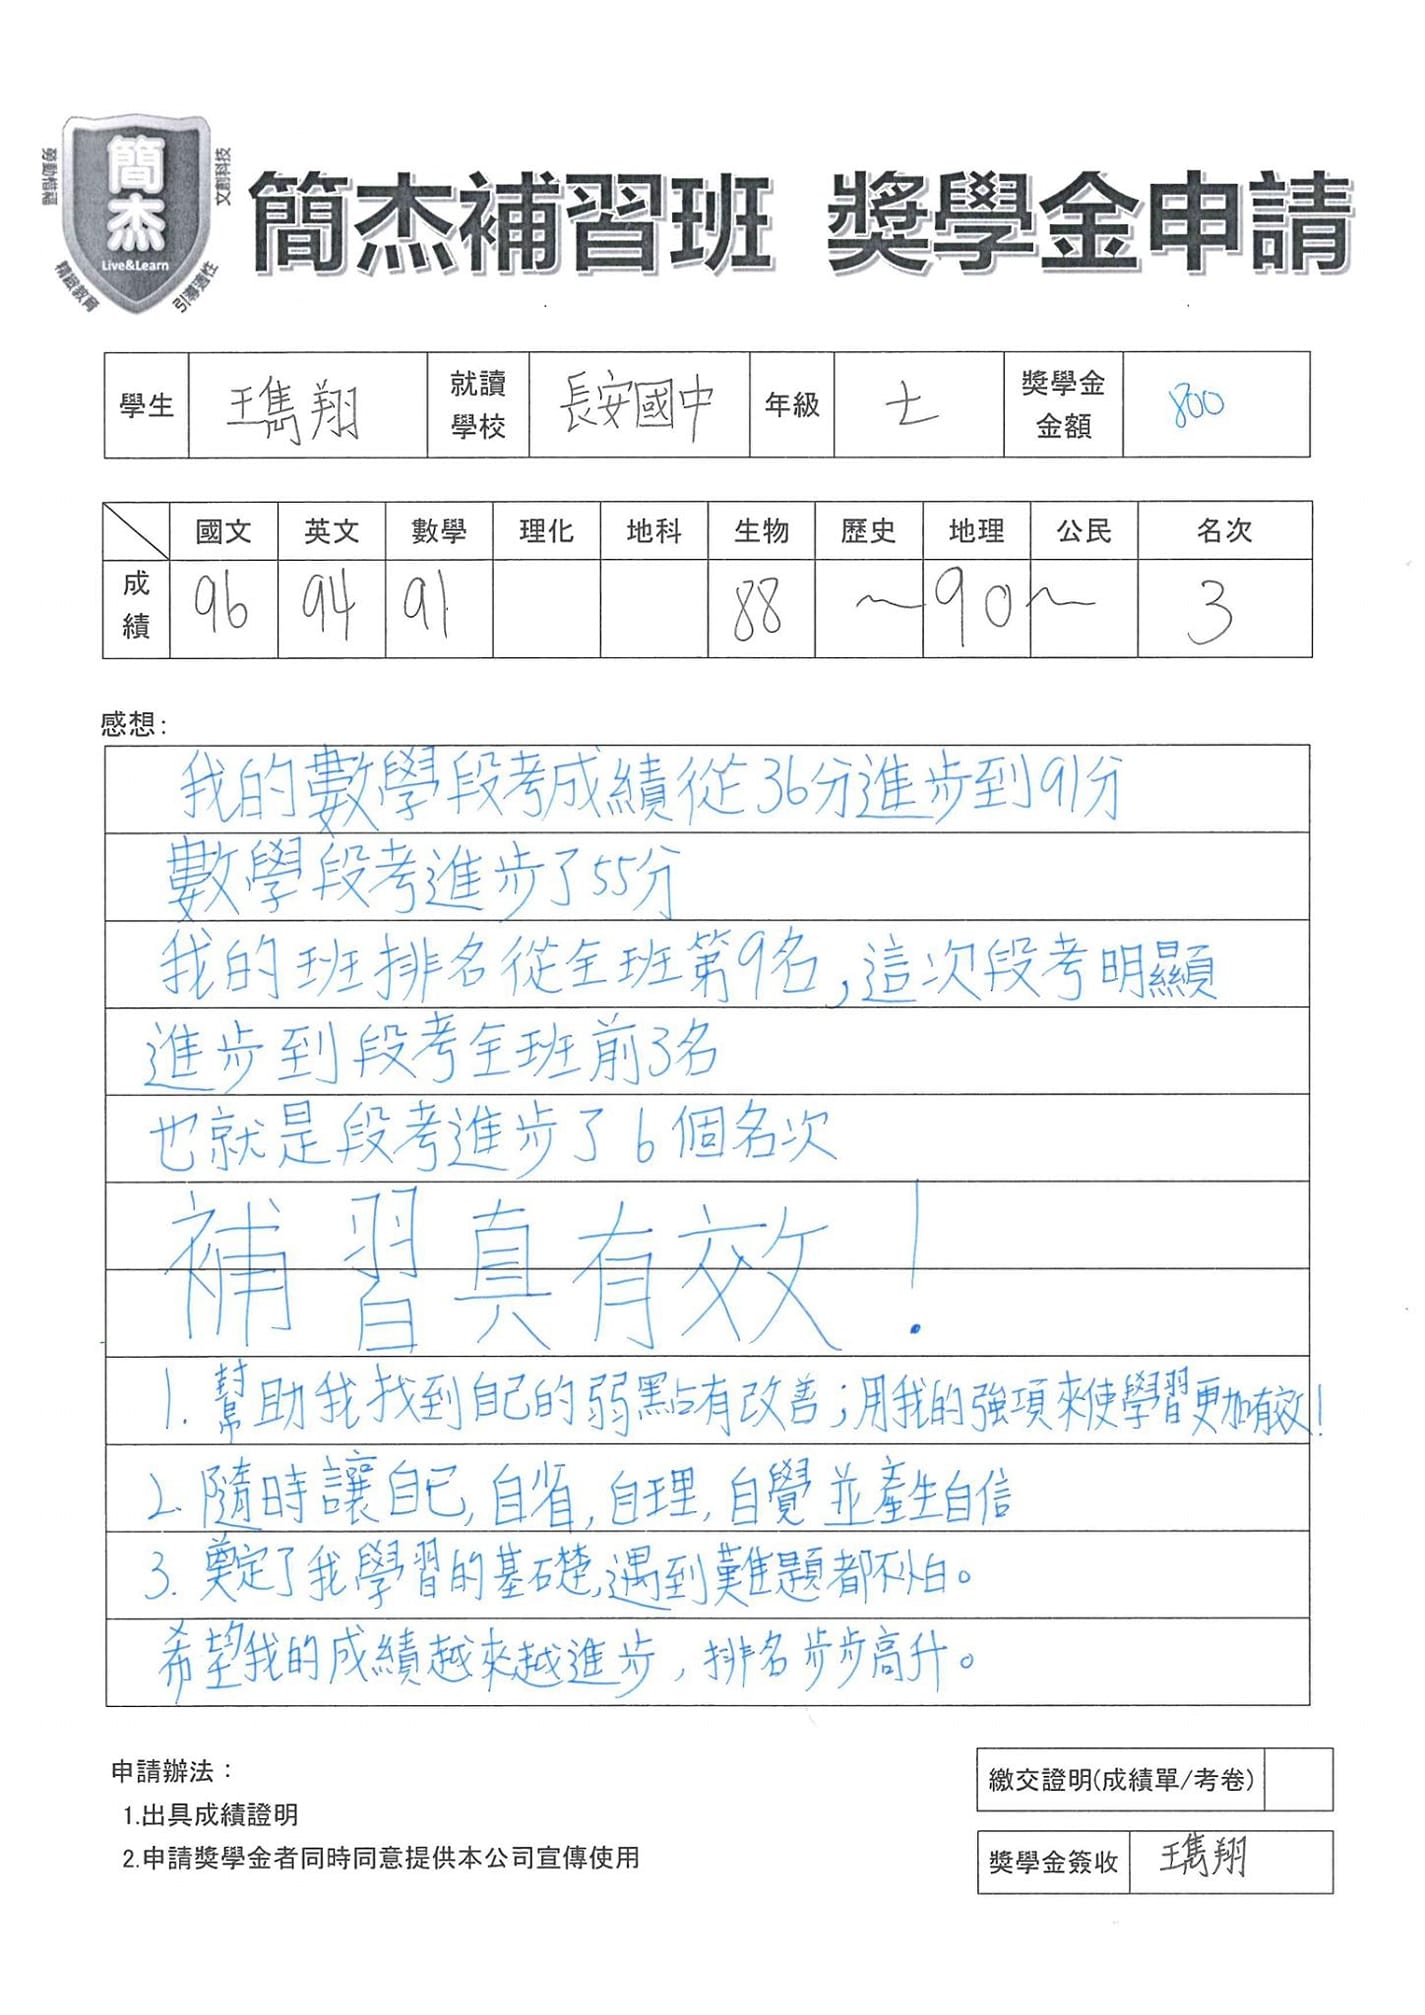 簡杰
Live&Learn
勞動惜福
精緻教育
引導適性
文創科技
簡杰補習班 獎學金申請
學生 王雋翔 就讀學校 長安國中 年級 七 獎學金金額 800
國文 英文 數學 理化 地科 生物 歷史 地理 公民 名次
成績 96 94 91 88 ~ 90 ~ 3
感想:
我的數學段考成績從36分進步到91分
數學段考進步了55分
我的班排名從全班第9名,這次段考明顯
進步到段考全班前3名
也就是段考進步了6個名次
補習真有效!
1. 幫助我找到自己的弱點有改善;用我的強項來使學習更加有效!
2. 隨時讓自己,自省,自理,自覺並產生自信
3. 奠定了我學習的基礎,遇到難題都不怕。
希望我的成績越來越進步,排名步步高升。
申請辦法:
1.出具成績證明
2.申請獎學金者同時同意提供本公司宣傳使用
繳交證明(成績單/考卷)
獎學金簽收 王雋翔